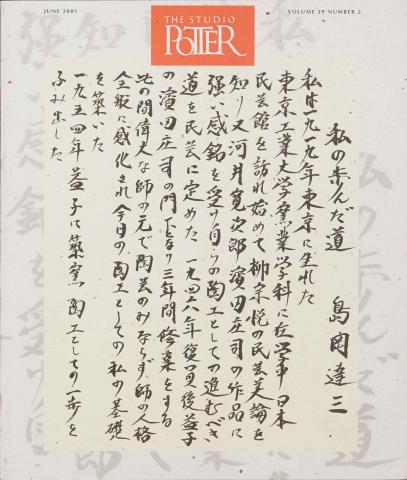 JUNE 2001
THE STUDIO
POTTER
VOLUME 29 NUMBER 2
私の歩んだ道 島岡達三
私は一九一九年東京に生れた
東京工業大学窯業学科に在学中日本
民芸館を訪れ始めて柳宗悦の民芸美論を
知り又河井寛次郎濱田庄司の作品に
強い感銘を受け自らの陶工としての進むべき
道を民芸に定めた 一九四六年復員後益子
の濱田庄司の門下となり三年間修業をする
此の間偉大な師の元で陶芸のみならず師の人格
全般に感化され今日の陶工としての私の基礎
を築いた
一九五四年益子に築窯 陶工としての一歩を
ふみ出した